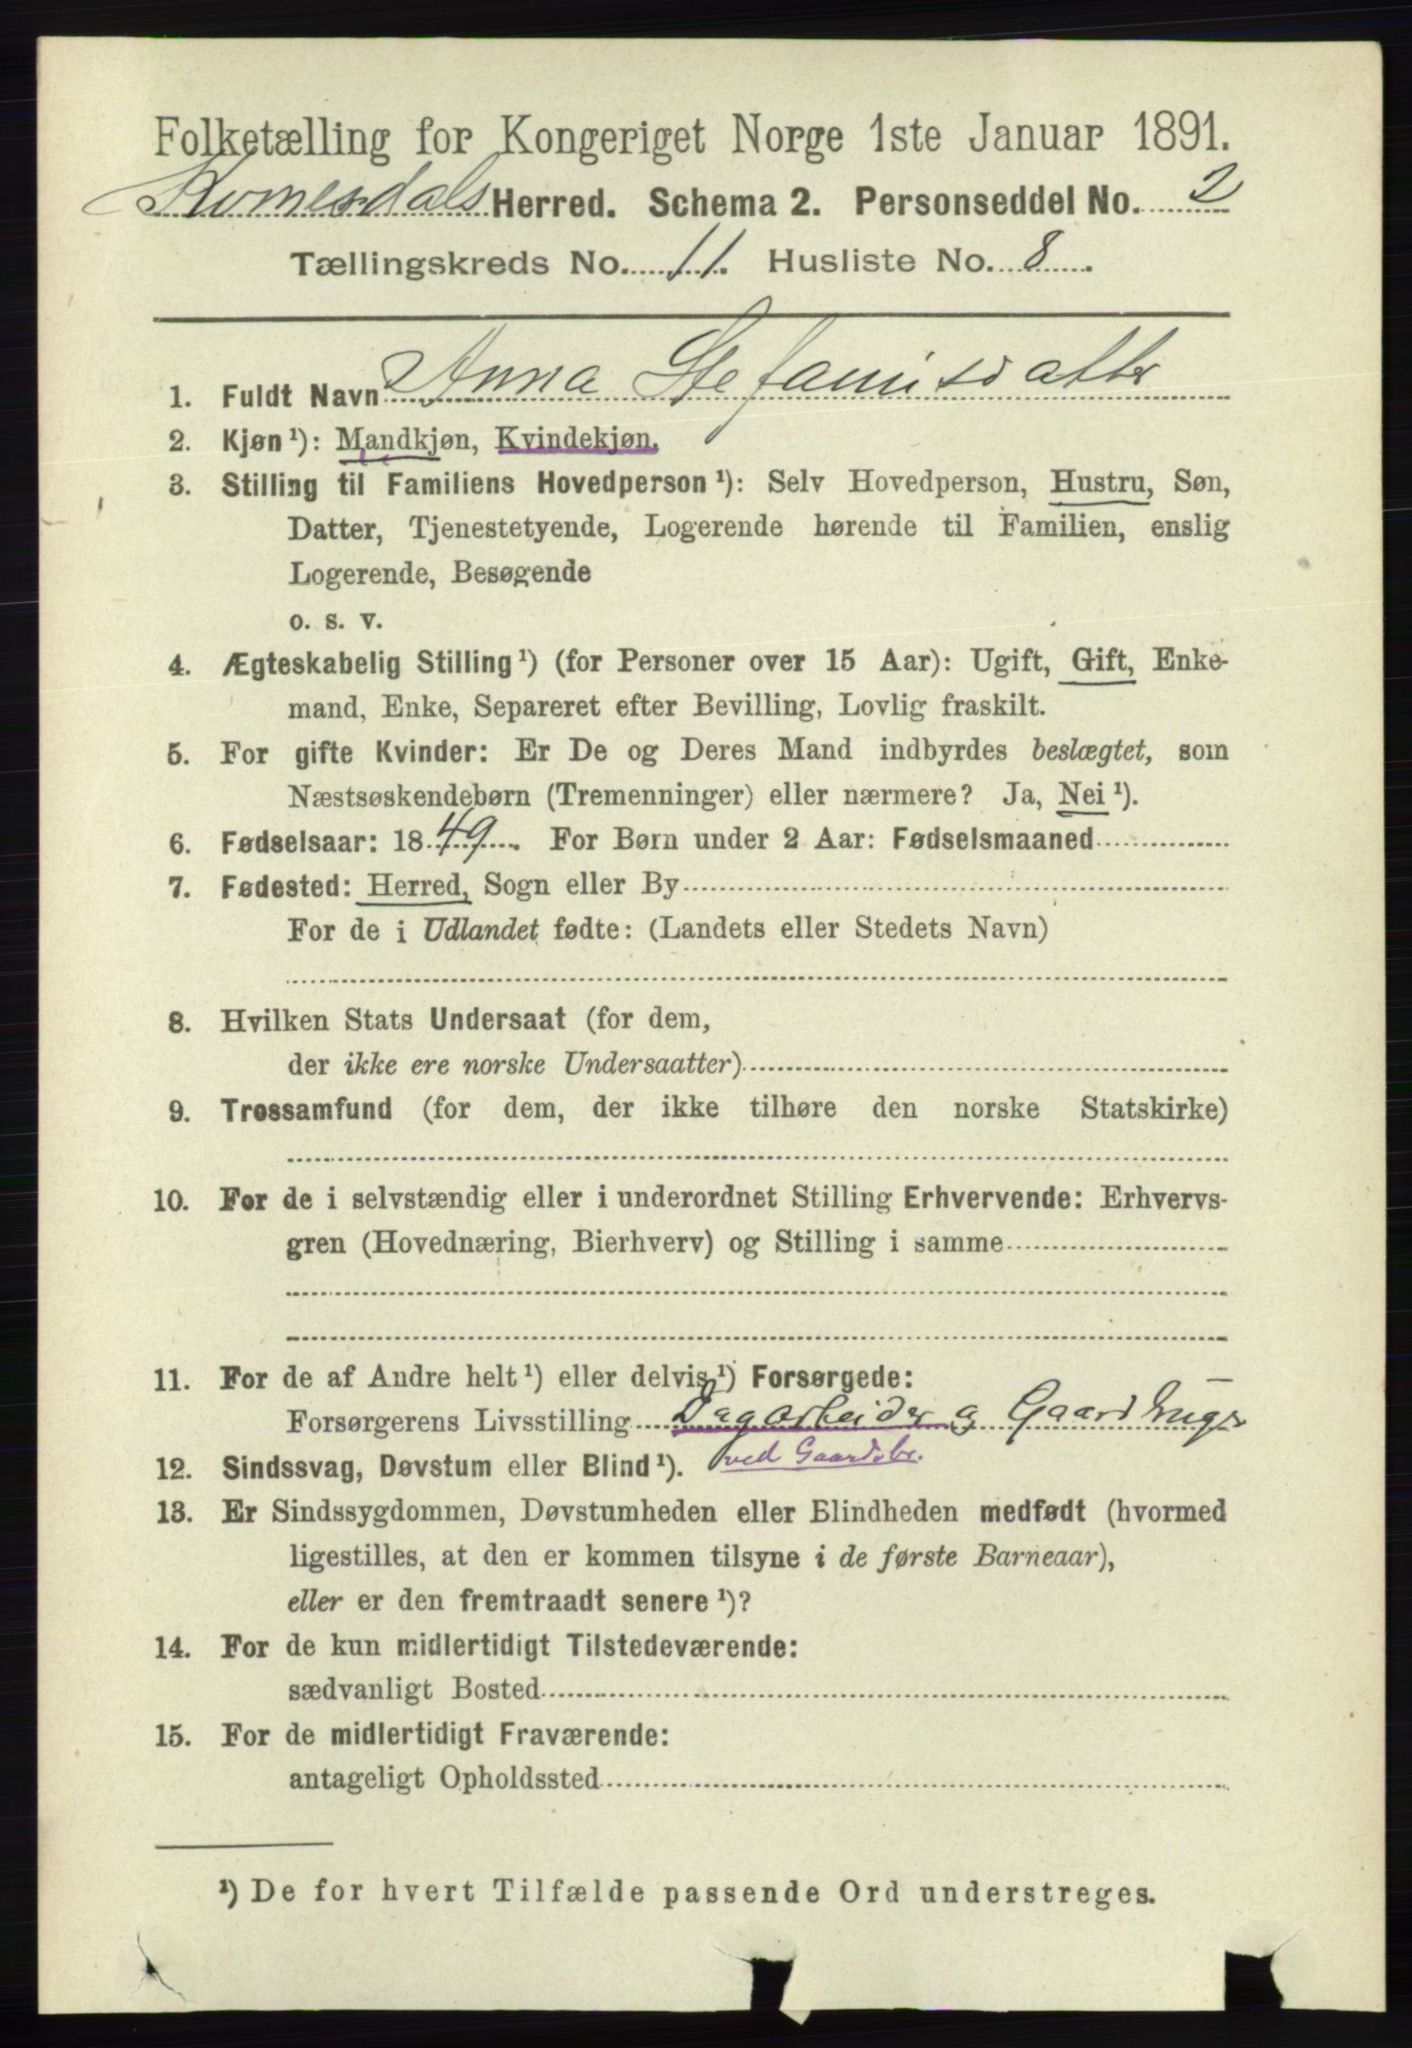 Folketælling for Kongeriget Norge 1ste Januar 1891.
Kvinesdals Herred. Schema 2. Personseddel No. 2
Tællingskreds No. 11. Husliste No. 8.
1. Fuldt Navn Anna Stefanusdatter
2. Kjøn¹): Mandkjøn, Kvindekjøn.
3. Stilling til Familiens Hovedperson¹): Selv Hovedperson, Hustru, Søn,
Datter, Tjenestetyende, Logerende hørende til Familien, enslig
Logerende, Besøgende
o. s. v.
4. Ægteskabelig Stilling¹) (for Personer over 15 Aar): Ugift, Gift, Enke-
mand, Enke, Separeret efter Bevilling, Lovlig fraskilt.
5. For gifte Kvinder: Er De og Deres Mand indbyrdes beslægtet, som
Næstsøskendebørn (Tremenninger) eller nærmere? Ja, Nei¹).
6. Fødselsaar: 1849. For Børn under 2 Aar: Fødselsmaaned
7. Fødested: Herred, Sogn eller By
For de i Udlandet fødte: (Landets eller Stedets Navn)
8. Hvilken Stats Undersaat (for dem,
der ikke ere norske Undersaatter)
9. Trossamfund (for dem, der ikke tilhøre den norske Statskirke)
10. For de i selvstændig eller i underordnet Stilling Erhvervende: Erhvervs-
gren (Hovednæring, Bierhverv) og Stilling i samme
11. For de af Andre helt¹) eller delvis¹) Forsørgede:
Forsørgerens Livsstilling Dagarbeider og Gaardbruger
ved Gaardsbr.
12. Sindssvag, Døvstum eller Blind¹).
13. Er Sindssygdommen, Døvstumheden eller Blindheden medfødt (hvormed
ligestilles, at den er kommen tilsyne i de første Barneaar),
eller er den fremtraadt senere¹)?
14. For de kun midlertidigt Tilstedeværende:
sædvanligt Bosted
15. For de midlertidigt Fraværende:
antageligt Opholdssted
¹) De for hvert Tilfælde passende Ord understreges.